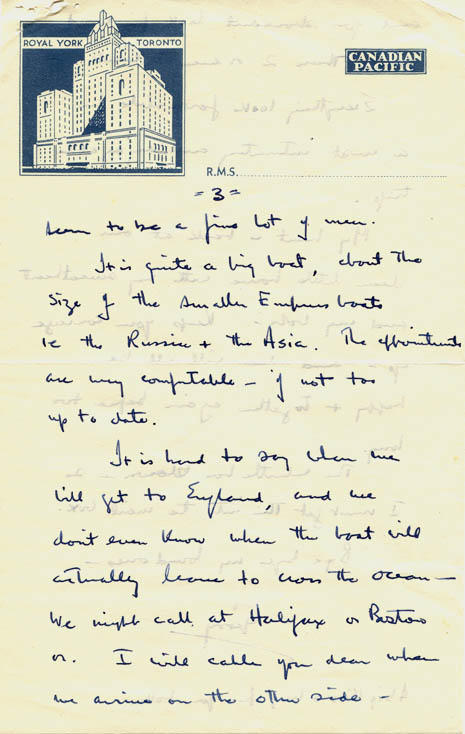 ROYAL YORK TORONTO
CANADIAN PACIFIC
R.M.S.
= 3 =
seem to be a fine lot of men.
It is quite a big boat, about the
size of the smaller Empress boats
ie the Russia + the Asia. The appointments
are very comfortable – if not too
up to date.
It is hard to say when we
will get to England, and we
don't even know when the boat will
actually leave to cross the ocean –
We might call at Halifax or Boston
or. I will cable you dear when
we arrive on the other side –